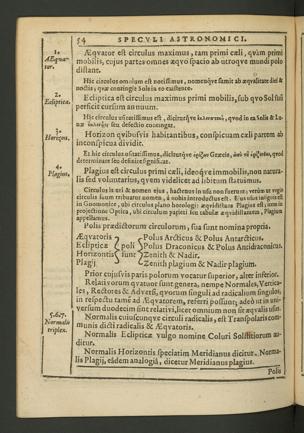 54 SPECULI ASTRONOMICI.
1. Æquator.
Æqvator est circulus maximus, tam primi cæli, qvàm primi
mobilis, cujus partes omnes æqvo spacio ab utroqve mundi polo
distant.
Hic circulus omnium est notissimus, nomenqve sumit ab æqvalitate diei &
noctis; qvæ contingit Sole in eo existente.
2. Ecliptica.
Ecliptica est circulus maximus primi mobilis, sub qvo Sol sui
perficit cursum annuum.
Hic circulus notissimus est, diciturqve qvod in ea Solis & Lunæ
seu defectio contingat.
3. Horizon.
Horizon qvibusvis habitantibus, conspicuam cæli partem ab
inconspicua dividit.
Et hic circulus usitatissimus, diciturqve ὁρίζων Græcis, ἀπὸ τοῦ ὁρίζειν, qvod
determinare seu definire significat.
4. Plagius.
Plagius est circulus primi cæli, ideoqve immobilis, non naturalis
sed voluntarius, qvem videlicet ad libitum statuimus.
Circulus is uti & nomen ejus, hactenus in usu non fuerunt; verùm ut reliqui
circulus suum tribuatur nomen, à nobis introductus est. Ejus usus insignis est
in Gnomonice, ubi circulus plano horologij æqvidistans Plagius est; item in
projectione Optica, ubi circulum papiri seu tabulæ æqvidistantem, Plagium
appellamus.
Polis prædictorum circulorum, sua sunt nomina propria.
Æqvatoris
Eclipticæ
Horizontis
Plagij
poli sunt
Polus Arcticus & Polus Antarcticus.
Polus Draconicus & Polus Antidraconicus.
Zenith & Nadir.
Zenith plagium & Nadir plagium.
Prior cujusvis paris polorum vocatur superior, alter inferior.
Relativorum qvatuor sunt genera, nempe Normales, Verticales,
Rectores & Adversi, qvorum singuli ad radicalium singulos,
in respectu tamen ad Æqvatorem, referri possunt; adeò ut in universum
duodecim sint relativi, licet omnium non sit æqvalis usus.
5.6.7. Normalis triplex.
Normalis cujuscunqve circuli radicalis, est Transpolaris communis
dicti radicalis & Æqvatoris.
Normalis Eclipticæ vulgo nomine Coluri Solstitiorum auditur.
Normalis Horizontis speciatim Meridianus dicitur. Normalis
Plagij, eâdem analogiâ, dicetur Meridianus plagius.
Polis